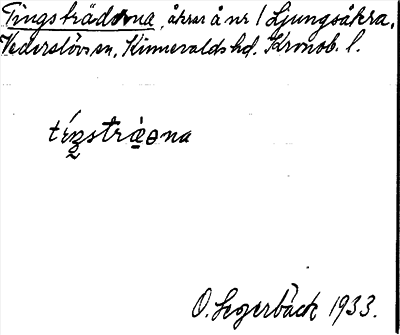 Tingsträdorna, åkrar å nr 1 Ljungsåkra,
Vederslövs sn, Kinnevalds hd. Kronob. l.
tíŋstrὰ̱ɵna
O. Segerbäck 1933.